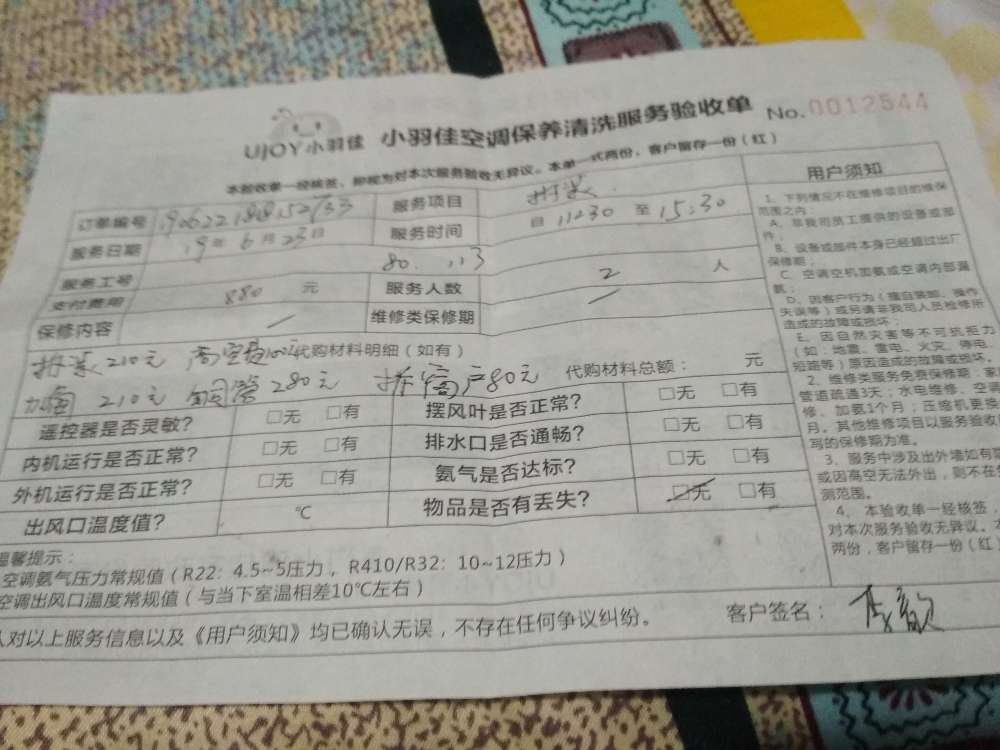 UJOY小羽佳 小羽佳空调保养清洗服务验收单 No.0012544
本验收单一经核签，即视为对本次服务验收无异议。本单一式两份，客户留存一份（红）
订单编号 服务项目 拆装
服务日期 19年6月23日 服务时间 自 11230 至 15:30
服务工号 80. 113
支付费用 880 元 服务人数 2 人
保修内容 / 维修类保修期 /
拆装210元 高空费100元 代购材料明细（如有）
210元 铜管280元 拆窗户80元 代购材料总额： 元
遥控器是否灵敏？ □无 □有 摆风叶是否正常？ □无 □有
内机运行是否正常？ □无 □有 排水口是否通畅？ □无 □有
外机运行是否正常？ □无 □有 氨气是否达标？ □无 □有
出风口温度值？ ℃ 物品是否有丢失？ □无 □有
温馨提示：
空调氨气压力常规值（R22：4.5~5压力，R410/R32：10~12压力）
空调出风口温度常规值（与当下室温相差10℃左右）
人对以上服务信息以及《用户须知》均已确认无误，不存在任何争议纠纷。 客户签名：
用户须知
1、下列情况不在维修项目的维保
范围之内：
A、非我司员工提供的设备或部
件；
B、设备或部件本身已经超过出厂
保修期；
C、空调空机加氨或空调内部漏
氨；
D、因客户行为（擅自装卸、操作
失误等）或另请非我司人员检修所
造成的故障或损坏；
E、因自然灾害等不可抗拒力
（如：地震、雷电、火灾、停电、
短路等）原因造成的故障或损坏。
2、维修类服务免费保修期：家
管道疏通3天；水电维修、空调
修、加氨1个月；压缩机更换
月。其他维修项目以服务验收
写的保修期为准。
3、服务中涉及出外墙如有
或因高空无法外出，则不在
测范围。
4、本验收单一经核签，
对本次服务验收无异议。本
两份，客户留存一份（红）